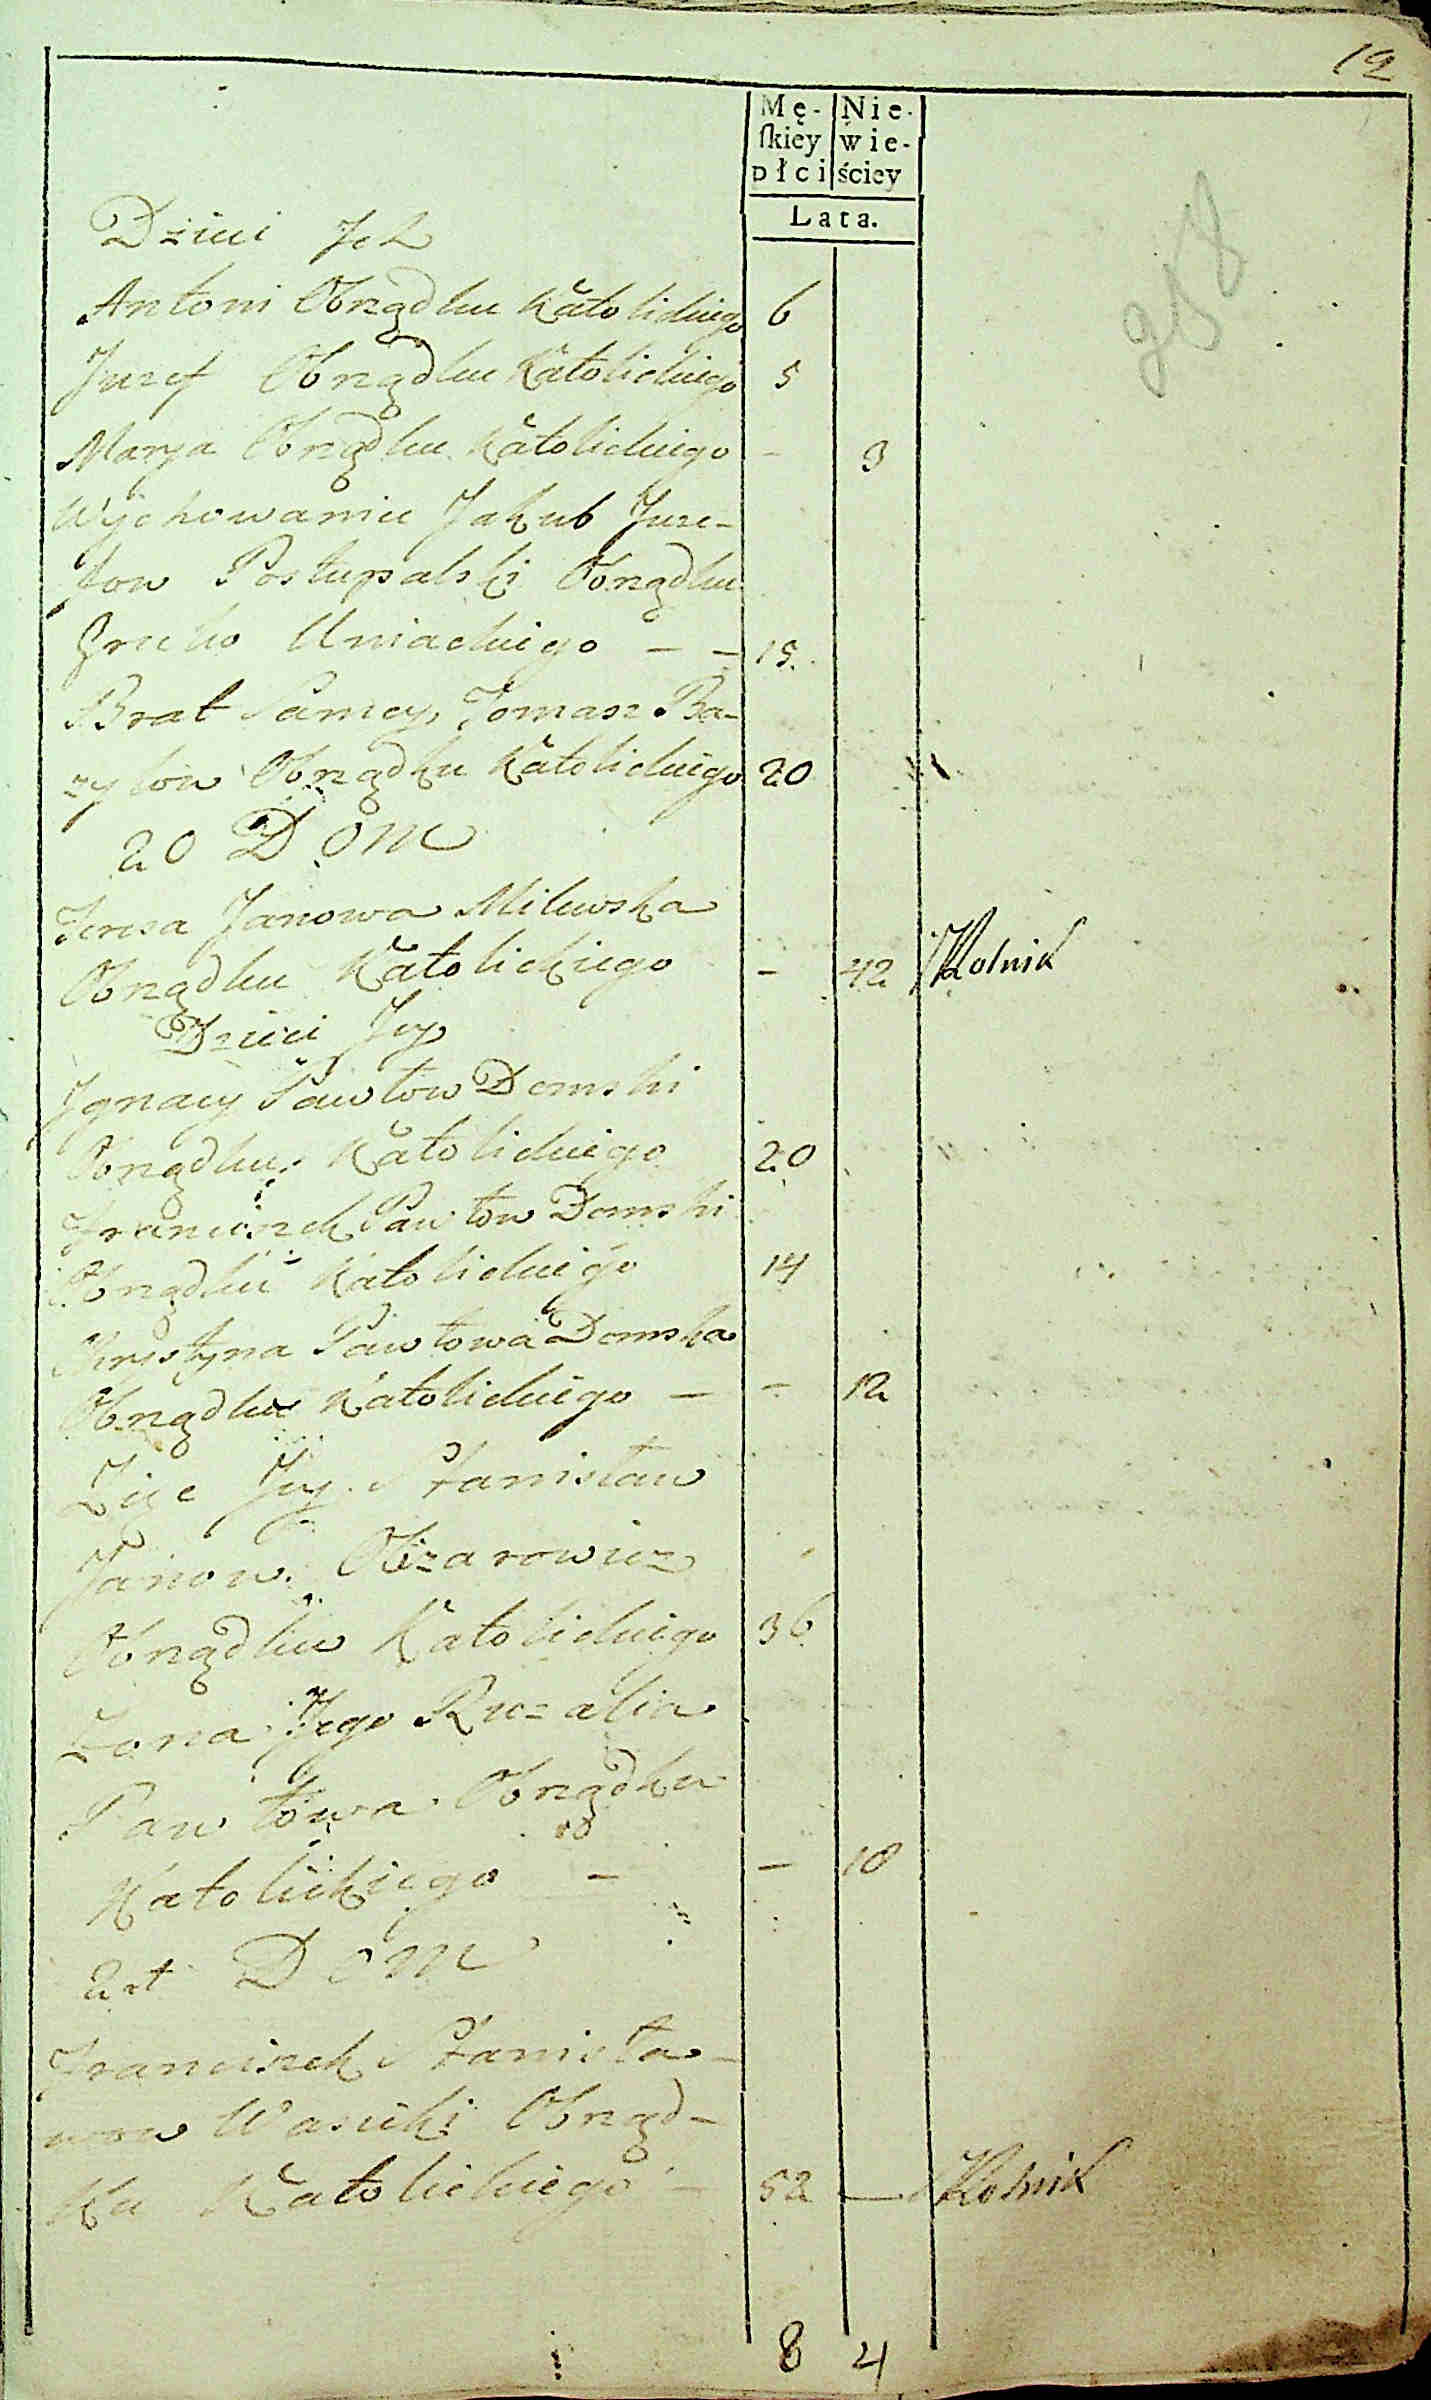 12
Mę- Nie-
ſkiey wie-
płci ściey
Lata.
958
Dzieci Jch
Antoni Obrządku Katolickiego 6
Juzef Obrządku Katolickiego 5
Marya Obrządku Katolickiego - 3
Wychowaniec Jakub Juze-
fow Postupalski Obrządku
Greko Uniackiego - - 15
Brat Samey, Tomasz Ba-
zylow Obrządku Katolickiego 20
20 Dom
Teresa Janowa Milewska
Obrządku Katolickiego - 42 Rolnik
Dzieci Jey
Jgnacy Pawłow Domski
Obrządku Katolickiego 20
Franciszek Pawłow Domski
Obrządku Katolickiego 14
Chrystyna Pawłowa Domska
Obrządku Katolickiego - - 12
Zięc Jey Stanisław
Janow
Obrządku Katolickiego 36
Zona Jego Ruzalia
Pawłowa Obrządku
Katolickiego - - 18
21 Dom
Franciszek Stanisła-
wow Wasicki Obrząd-
ku Katolickiego - 52 — Rolnik
8 4